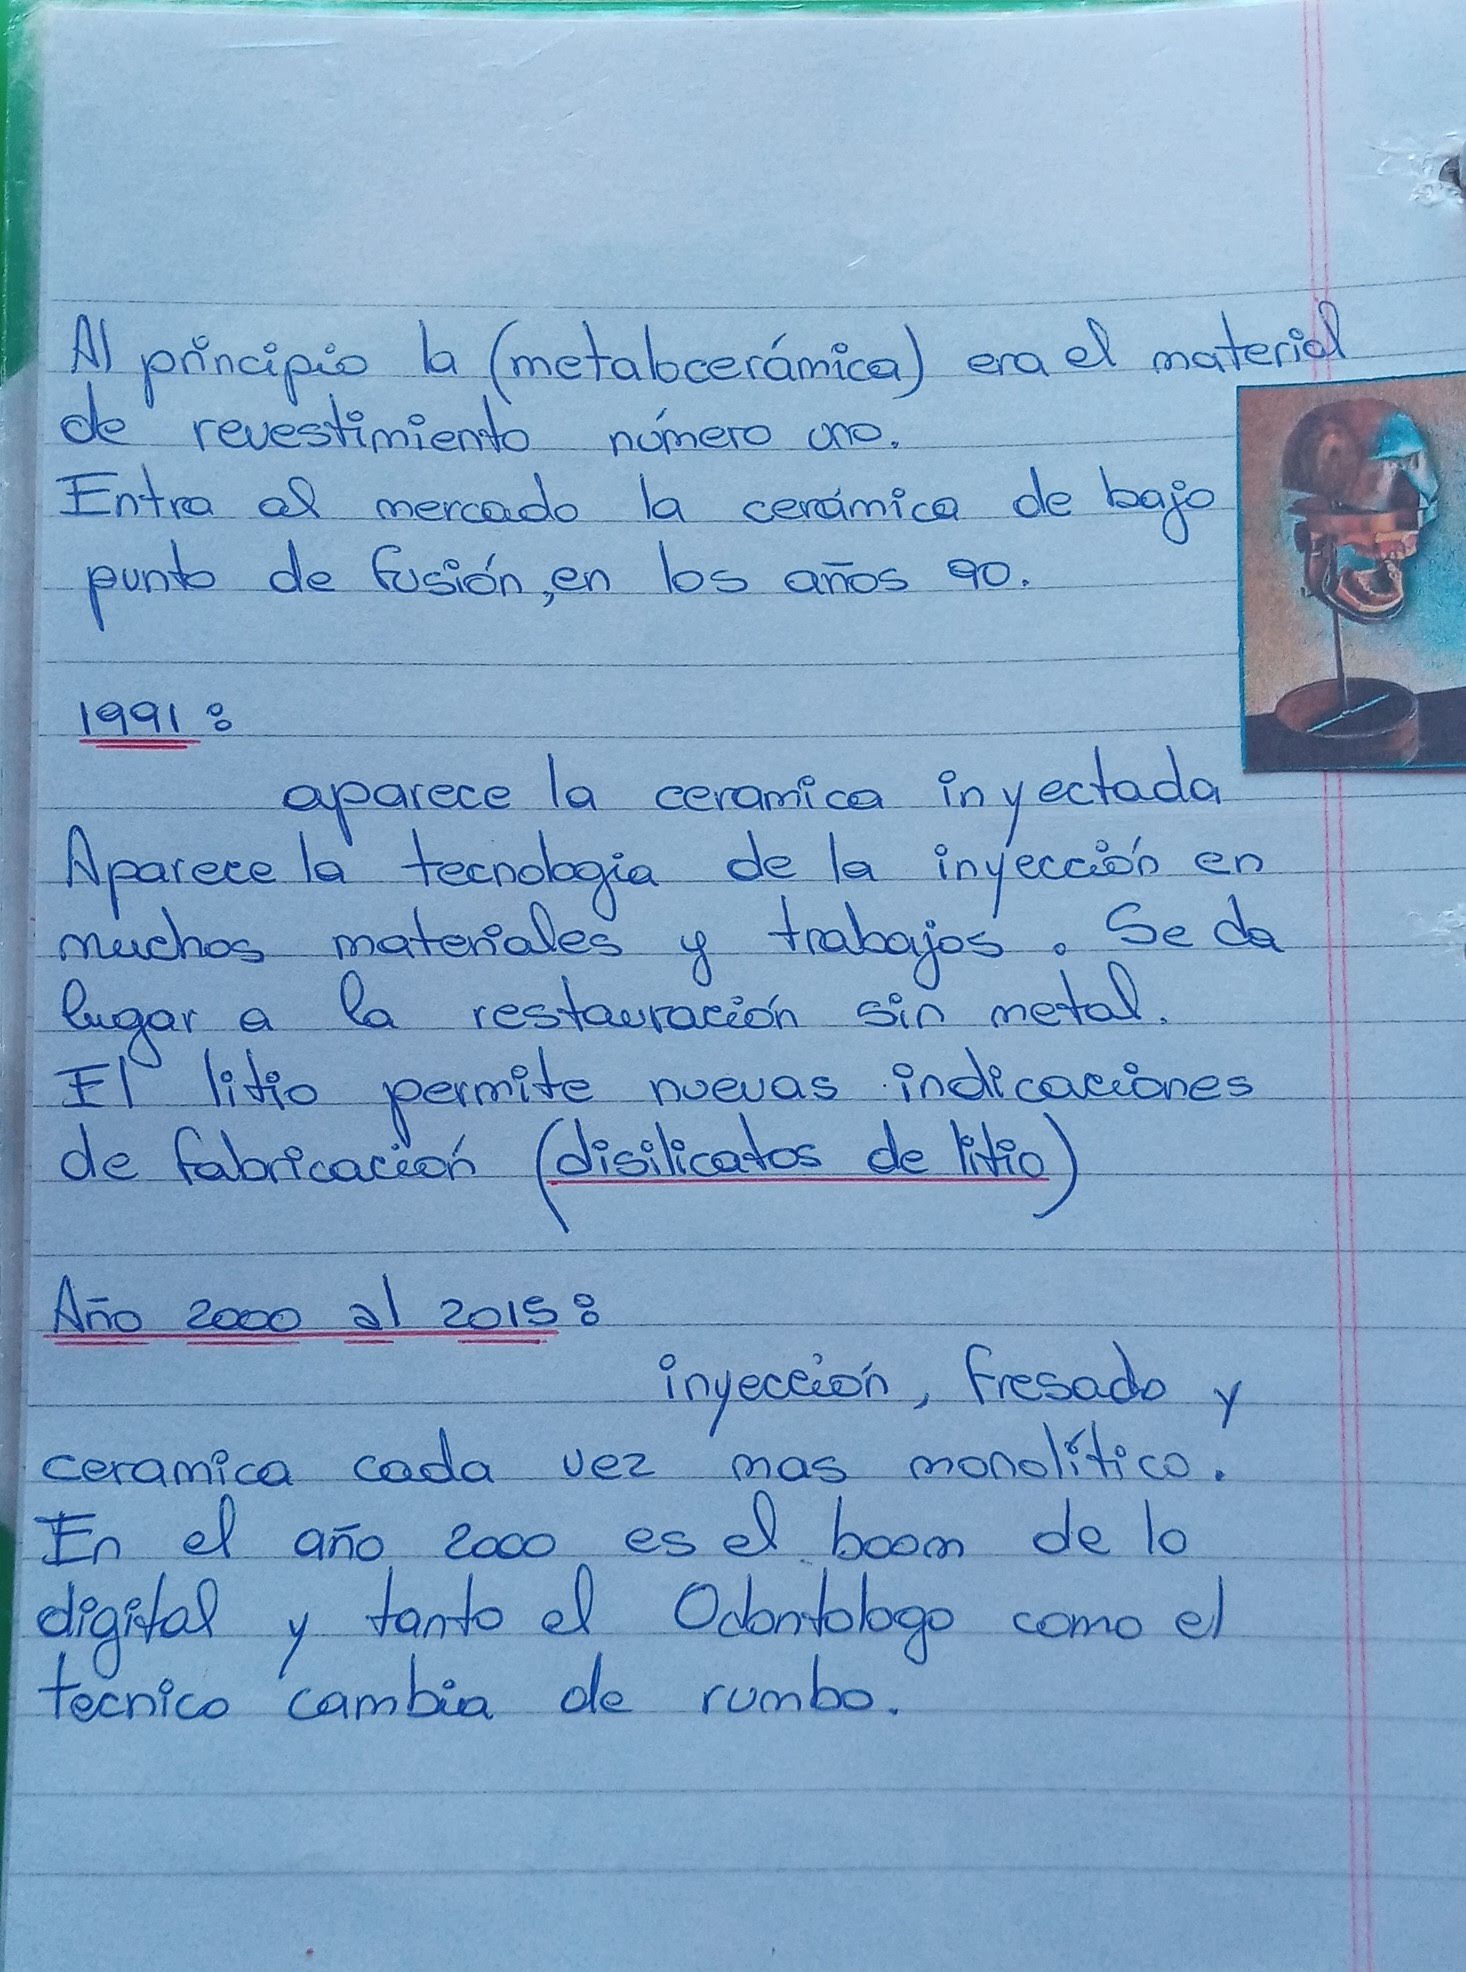 Al principio la (metalocerámica) era el material
de revestimiento número uno.
Entra al mercado la cerámica de bajo
punto de fusión, en los años 90.
1991:
aparece la ceramica inyectada
Aparece la tecnologia de la inyección en
muchos materiales y trabajos. Se da
lugar a la restauración sin metal.
El litio permite nuevas indicaciones
de fabricación (disilicatos de litio)
Año 2000 al 2015:
inyección, fresado y
ceramica cada vez mas monolítico.
En el año 2000 es el boom de lo
digital y tanto el Odontologo como el
tecnico cambia de rumbo.